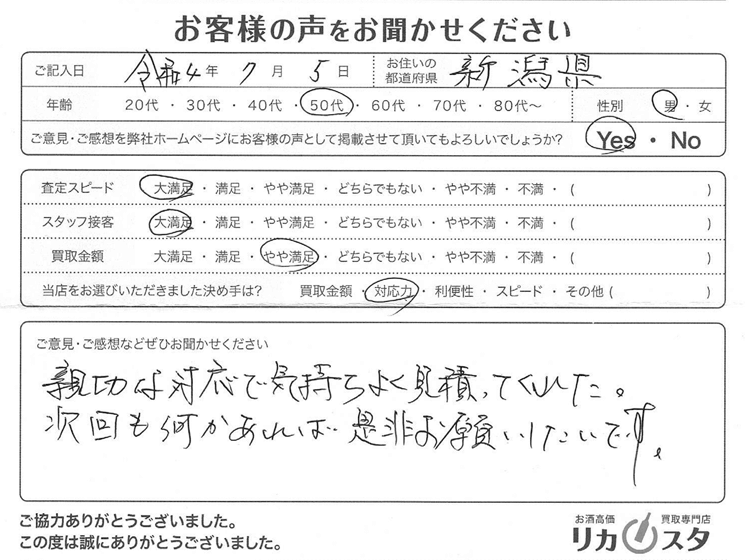 お客様の声をお聞かせください
ご記入日 令和4年 7月 5日 お住いの都道府県 新潟県
年齢 20代 ・ 30代 ・ 40代 ・ 50代 ・ 60代 ・ 70代 ・ 80代〜 性別 男 ・ 女
ご意見・ご感想を弊社ホームページにお客様の声として掲載させて頂いてもよろしいでしょうか? Yes ・ No
査定スピード 大満足 ・ 満足 ・ やや満足 ・ どちらでもない ・ やや不満 ・ 不満 ・ ( )
スタッフ接客 大満足 ・ 満足 ・ やや満足 ・ どちらでもない ・ やや不満 ・ 不満 ・ ( )
買取金額 大満足 ・ 満足 ・ やや満足 ・ どちらでもない ・ やや不満 ・ 不満 ・ ( )
当店をお選びいただきました決め手は? 買取金額 ・ 対応力 ・ 利便性 ・ スピード ・ その他 ( )
ご意見・ご感想などぜひお聞かせください
親切な対応で気持ちよく見積ってくれました。
次回も何かあれば是非お願いしたいです。
ご協力ありがとうございました。
この度は誠にありがとうございました。
お酒高価 買取専門店
リカスタ